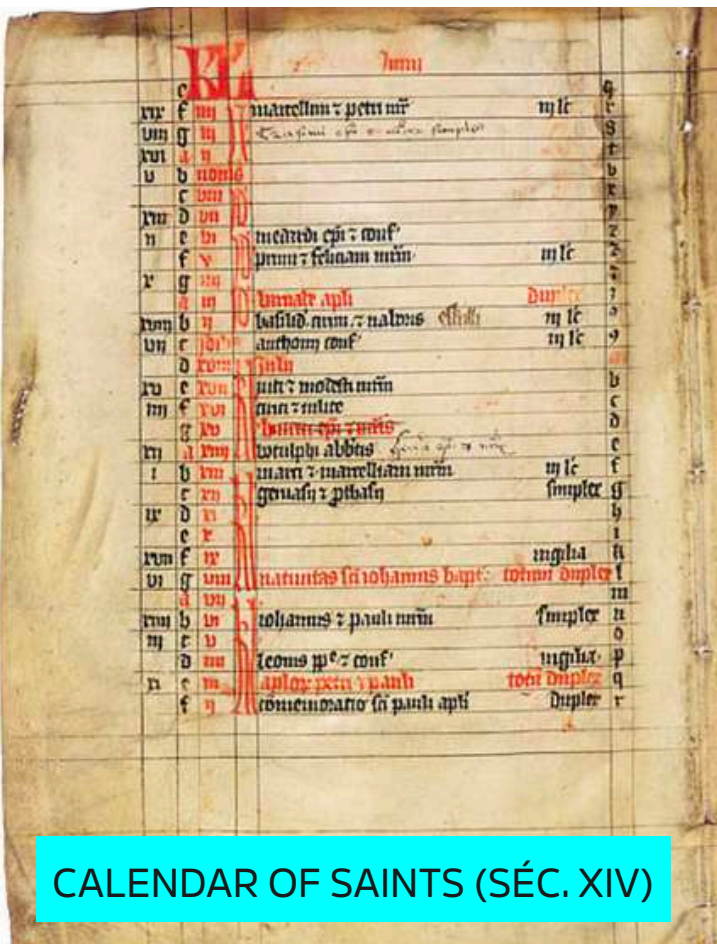 KL Junii
e q
xix f iiii marcellini ⁊ petri mr̄ iii lc̄ r
viii g iii simplex s
xvi a ii t
v b nonis v
c viii x
xiii d vii y
ii e vi medardi ep̄i ⁊ conf' z
f v primi ⁊ feliciani mrm̄ iii lc̄
x g iiii
a iii barnabe apl̄i duplex
xviii b ii basilid. cirini. ⁊ naboris iii lc̄
vii c anthonii conf' iii lc̄ 9
d xviii julii a
xv e xvii viti ⁊ modesti mrm̄ b
iiii f xvi cirici ⁊ iulite c
g xv d
xii a xiiii botulphi abb̄is e
i b xiii marci ⁊ marcelliani mrm̄ iii lc̄ f
c xii geruasii ⁊ ꝓthasii simplex g
ix d xi h
e x i
xvii f ix uigilia k
vi g viii natiuitas sc̄i iohannis bapt. totum duplex l
a vii m
xiiii b vi iohannis ⁊ pauli mrm̄ simplex n
iii c v o
d iiii leonis pp̄e ⁊ conf' uigilia p
xi e iii apl̄oꝝ petri ⁊ pauli totū duplex q
f ii cōmemoratio sc̄i pauli apl̄i duplex r
CALENDAR OF SAINTS (SÉC. XIV)